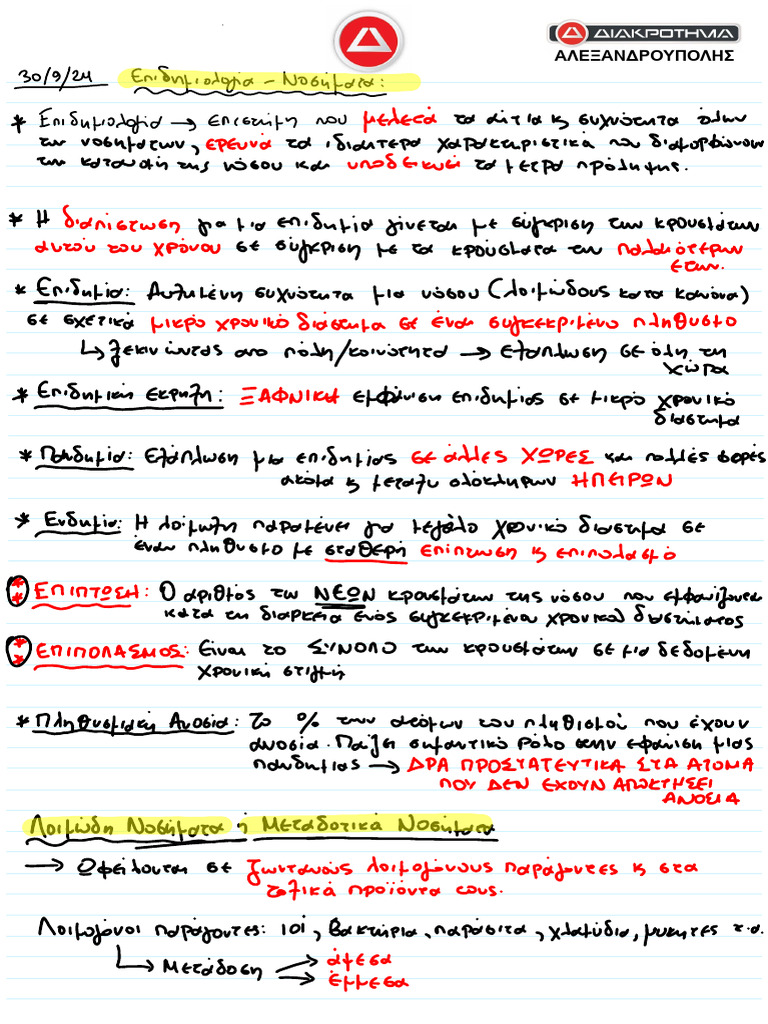 ΔΙΑΚΡΟΤΗΜΑ
ΑΛΕΞΑΝΔΡΟΥΠΟΛΗΣ
30/9/24 Επιδημιολογία - Νοσήματα:
* Επιδημιολογία → επιστήμη που μελετά τα αίτια & συχνότητα όλων
των νοσημάτων, ερευνά τα ιδιαίτερα χαρακτηριστικά που διαμορφώνουν
την κατανομή της νόσου και υποδεικνύει τα μέτρα πρόληψης.
* Η διαπίστωση για μια επιδημία γίνεται με σύγκριση των κρουσμάτων
αυτού του χρόνου σε σύγκριση με τα κρούσματα των παλαιότερων
ετών.
* Επιδημία: Αυξημένη συχνότητα μια νόσου (λοιμώδους κατα κανόνα)
σε σχετικά μικρό χρονικό διάστημα σε έναν συγκεκριμένο πληθυσμό
↳ ξεκινώντας απο πόλη/κοινότητα → εξάπλωση σε όλη τη
χώρα
* Επιδημική έκρηξη: ΞΑΦΝΙΚΗ εμφάνιση επιδημίας σε μικρό χρονικό
διάστημα
* Πανδημία: Εξάπλωση μια επιδημίας σε άλλες ΧΩΡΕΣ και πολλές φορές
ακόμα & μεταξυ ολόκληρων ΗΠΕΙΡΩΝ
* Ενδημία: Η λοίμωξη παραμένει για μεγάλο χρονικό διαστημα σε
έναν πληθυσμο με σταθερή επίπτωση & επιπολασμό
** ΕΠΙΠΤΩΣΗ: Ο αριθμός των ΝΕΩΝ κρουσμάτων της νόσου που εμφανίζονται
κατα τη διαρκεια ενός συγκεκριμένου χρονικού διαστήματος
** ΕΠΙΠΟΛΑΣΜΟΣ: Είναι το ΣΥΝΟΛΟ των κρουσμάτων σε μια δεδομένη
χρονική στιγμή
* Πληθυσμιακή Ανοσία: Το % των ατόμων του πληθισμού που έχουν
ανοσία. Παίζει σημαντικό ρόλο στην εφάνιση μιας
πανδημιας → ΔΡΑ ΠΡΟΣΤΑΤΕΥΤΙΚΑ ΣΤΑ ΑΤΟΜΑ
ΠΟΥ ΔΕΝ ΕΧΟΥΝ ΑΠΟΚΤΗΣΕΙ
ΑΝΟΣΙΑ
Λοιμώδη Νοσήματα ή Μεταδοτικά Νοσήματα
→ Οφείλονται σε ζωντανούς λοιμογόνους παράγοντες & στα
τοξικά προϊόντα τους.
Λοιμογόνοι παράγοντες: ιοί, βακτήρια, παράσιτα, χλαμύδια, μυκητες τ.α.
↳ Μετάδοση → άμεσα
→ έμμεσα